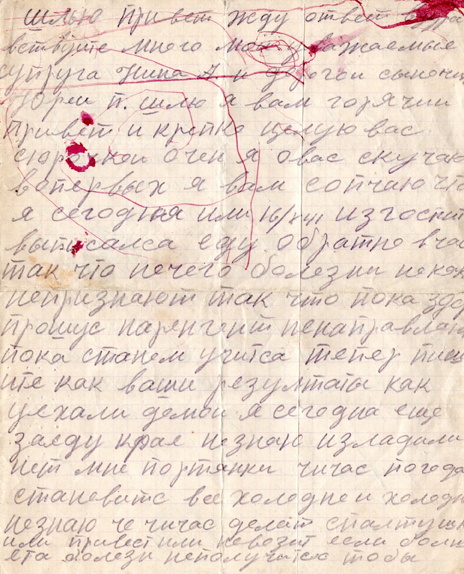 шлю привет жду ответ здра
вствуйте много многоуважаемые
супруга Нина А. и дорогой сыночик
Юреи п. шлю я вам горячии
привет и крепко целую вас
очен я о вас скучаю
вопервых я вам сопчаю что
я сегодня или 16/ выпи из госпит
выписалса еду обратно в час
так что нечего болезни некак
непризнают так что пока здор
прошус нарентген ненаправлают
пока станем учитса тепер пиши
ите как ваши результаты как
уехали домои я сегодна еще
заеду незнаю изладили
нет мне портанки чичас погода
становитс все холодне и холодн
незнаю че чичас делат спалтушк
или привест или невозит если болит
ета болезн неполучитсю тобы